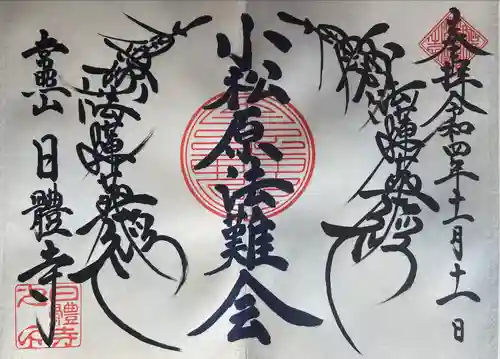 奉拝 令和四年十一月十一日
南無妙法蓮華経
小松原法難会
南無妙法蓮華経
霊山 日體寺